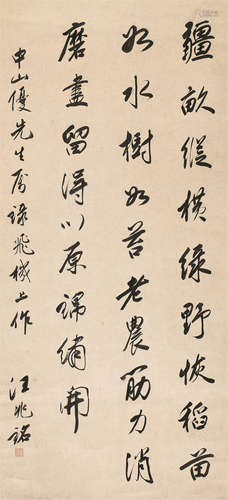 疆畝縱橫綠野恢稻苗
如水樹如苔老農筋力消
磨盡留得川原錦繡開
中山優先生屬錄飛機上作 汪兆銘